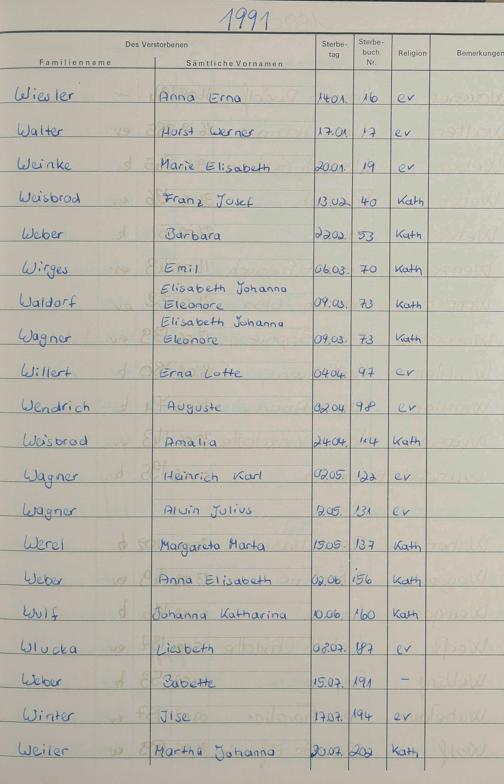 1991
Des Verstorbenen Sterbe- Sterbe- Religion Bemerkungen
Familienname Sämtliche Vornamen tag buch
Nr.
Wiesler Anna Erna 14.01. 16 ev
Walter Horst Werner 17.01 17 ev
Weinke Marie Elisabeth 20.01. 19 ev
Weisbrod Franz Josef 13.02. 40 Kath
Weber Barbara 22.02. 53 Kath
Wirges Emil 06.03. 70 Kath
Elisabeth Johanna
Waldorf Eleonore 09.03. 73 Kath
Elisabeth Johanna
Wagner Eleonore 09.03. 73 Kath
Willert Erna Lotte 04.04. 97 ev
Wendrich Auguste 02.04. 98 ev
Weisbrod Amalia 24.04. 114 Kath
Wagner Heinrich Karl 02.05. 122 ev
Wagner Alwin Julius 131 ev
Werel Margareta Marta 15.05. 137 Kath
Weber Anna Elisabeth 02.06. 156 Kath
Wulf Johanna Katharina 10.06. 160 Kath
Wlucka Liesbeth 03.07. 187 ev
Weber Babette 15.07. 191 –
Winter Ilse 17.07. 194 ev
Weiler Martha Johanna 20.07. 202 Kath